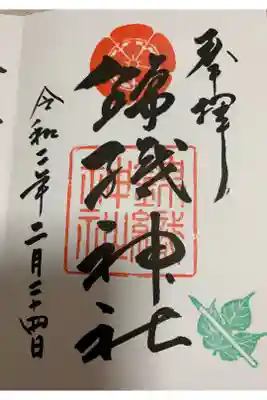 奉拝
錦織神社
令和二年二月二十四日
錦織
神社